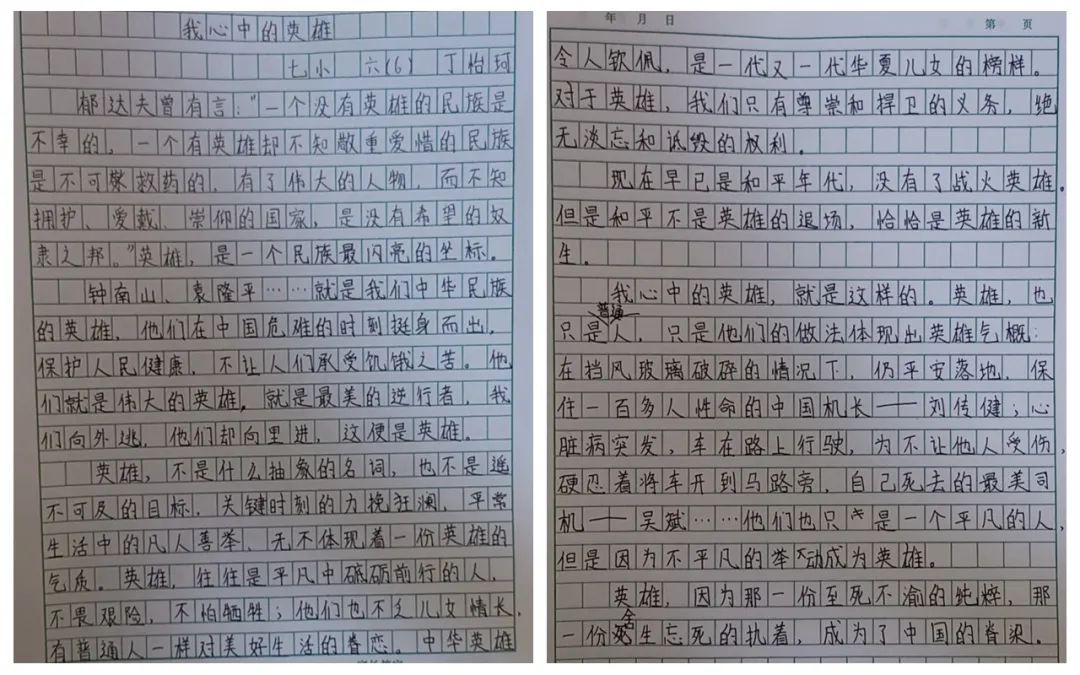 我心中的英雄
七小 六(6) 丁怡珂
郁达夫曾有言:"一个没有英雄的民族是
不幸的,一个有英雄却不知敬重爱惜的民族
是不可救药的,有了伟大的人物,而不知
拥护、爱戴、崇仰的国家,是没有希望的奴
隶之邦。"英雄,是一个民族最闪亮的坐标。
钟南山、袁隆平……就是我们中华民族
的英雄,他们在中国危难的时刻挺身而出,
保护人民健康,不让人们承受饥饿之苦。他
们就是伟大的英雄,就是最美的逆行者,我
们向外逃,他们却向里进,这便是英雄。
英雄,不是什么抽象的名词,也不是遥
不可及的目标,关键时刻的力挽狂澜,平常
生活中的凡人善举,无不体现着一份英雄的
气质。英雄,往往是平凡中砥砺前行的人,
不畏艰险,不怕牺牲;他们也不乏儿女情长,
有普通人一样对美好生活的眷恋。中华英雄
年 月 日 第 页
令人钦佩,是一代又一代华夏儿女的榜样。
对于英雄,我们只有尊崇和捍卫的义务,绝
无淡忘和诋毁的权利。
现在早已是和平年代,没有了战火英雄。
但是和平不是英雄的退场,恰恰是英雄的新
生。
我心中的英雄,就是这样的。英雄,也
只是普通人,只是他们的做法体现出英雄气概:
在挡风玻璃破碎的情况下,仍平安落地,保
住一百多人性命的中国机长——刘传健;心
脏病突发,车在路上行驶,为不让他人受伤,
硬忍着将车开到马路旁,自己死去的最美司
机——吴斌……他们也只是一个平凡的人,
但是因为不平凡的举动成为英雄。
英雄,因为那一份至死不渝的纯粹,那
一份舍生忘死的执着,成为了中国的脊梁。